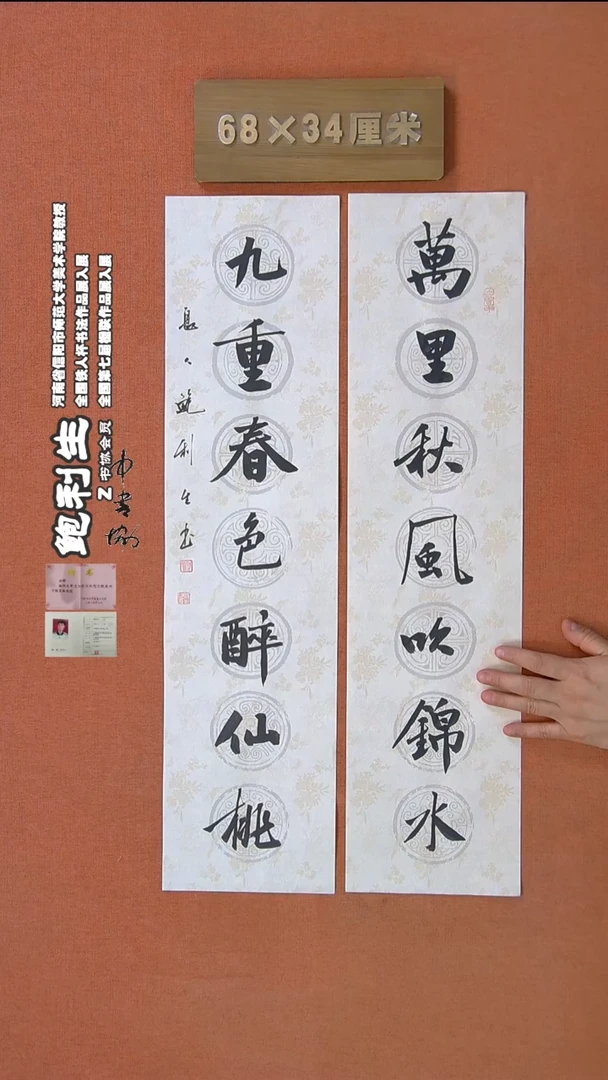 68×34厘米
萬里秋風吹錦水
九重春色醉仙桃
鮑利生书
河南省信阳市师范大学美术学院教授
全国铁人杯书法作品展入展
全国第七届楹联作品展入展
鲍利生
书协会员